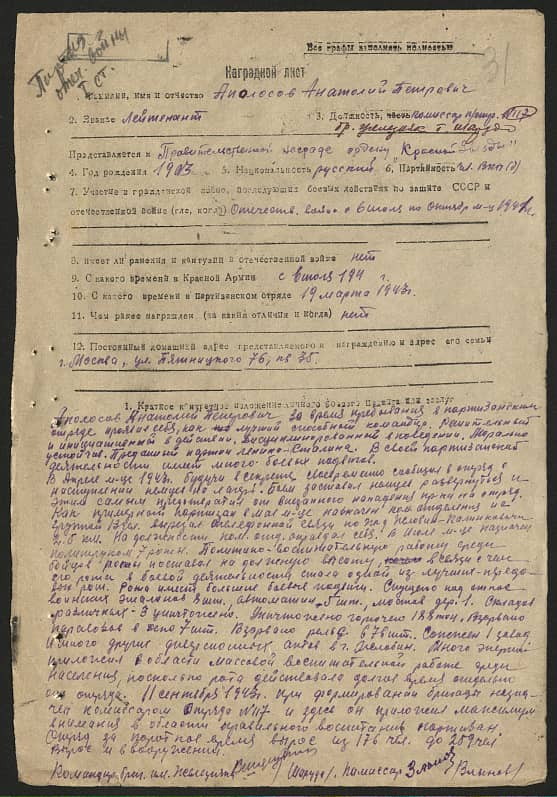 Партиз
отеч войны
I ст.
3
Все графы выполнять полностью
Наградной лист
1. Фамилия, имя и отчество Аполосов Анатолий Петрович
2. Звание Лейтенант 3. Должность, часть комиссар №117
Представляется к Правительственной награде ордену Красной
4. Год рождения 1913 5. Национальность русский 6. Партийность
7. Участие в гражданской войне, последующих боевых действиях по защите СССР и
отечественной войне (где, когда) Отечеств. война с июля по октябрь м-ц 1941 г.
8. имеет ли ранения и контузии в отечественной войне нет
9. С какого времени в Красной Армии с июля 194 г.
10. С какого времени в Партизанском отряде 19 марта 1943 г.
11. Чем ранее награжден (за какие отличия и когда) нет
12. Постоянный домашний адрес представляемого к награждению и адрес его семьи
г. Москва, ул. Пятницкого 76, кв 35.
1. Краткое конкретное изложение личного боевого подвига или заслуг
Аполосов Анатолий Петрович за время пребывания в партизанском
отряде проявил себя, как лучший способный командир. Решительный
и инициативный в действии. Дисциплинированный в поведении. Морально
устойчив. Преданный партии Ленина-Сталина. В своей партизанской
деятельности имеет много боевых подвигов.
В Апреле м-це 1943 г. будучи в секрете своевременно сообщил в отряд о
наступлении немцев на лагерь
этим самым от внезапного нападения пр-ка на отряд.
Как примерный партизан в мае м-це назначен ком. отделения
группой 13 чел. вырезал телефонной связи по жд Жлобин-Калинковичи
2,5 км. На должности ком. отд. оправдал себя. В Июле м-це назначен
политруком роты. Политико-воспитательную работу среди
бойцов роты поставил на должную высоту, в связи с чем
его рота в боевой деятельности стала одной из лучших
рот. Рота имеет большие боевые подвиги. Спущено под откос
воинских эшелонов 8 шт., автомашин 5 шт., мостов дер. 1. Складов
различных - 3 уничтожено. Уничтожено горючего Взорвано
паровозов в депо 7 шт. Взорвано рельс 678 шт. Сожжен 1 завод
и много других диверсионных актов в г. Жлобин. Много энергии
приложил в области массовой воспитательной работе среди
населения, поскольку рота действовала долгое время отдельно
от отряда. 11 сентября 1943 г. при формировании бригады
назначен комиссаром Отряда №117 и здесь он приложил максимум
внимания в области правильного воспитания партизан.
Отряд за короткое время вырос из 176 чел. до 259 чел.
Вырос и в вооружении.
Командир бриг. им. Железняка (Шаруда) Комиссар